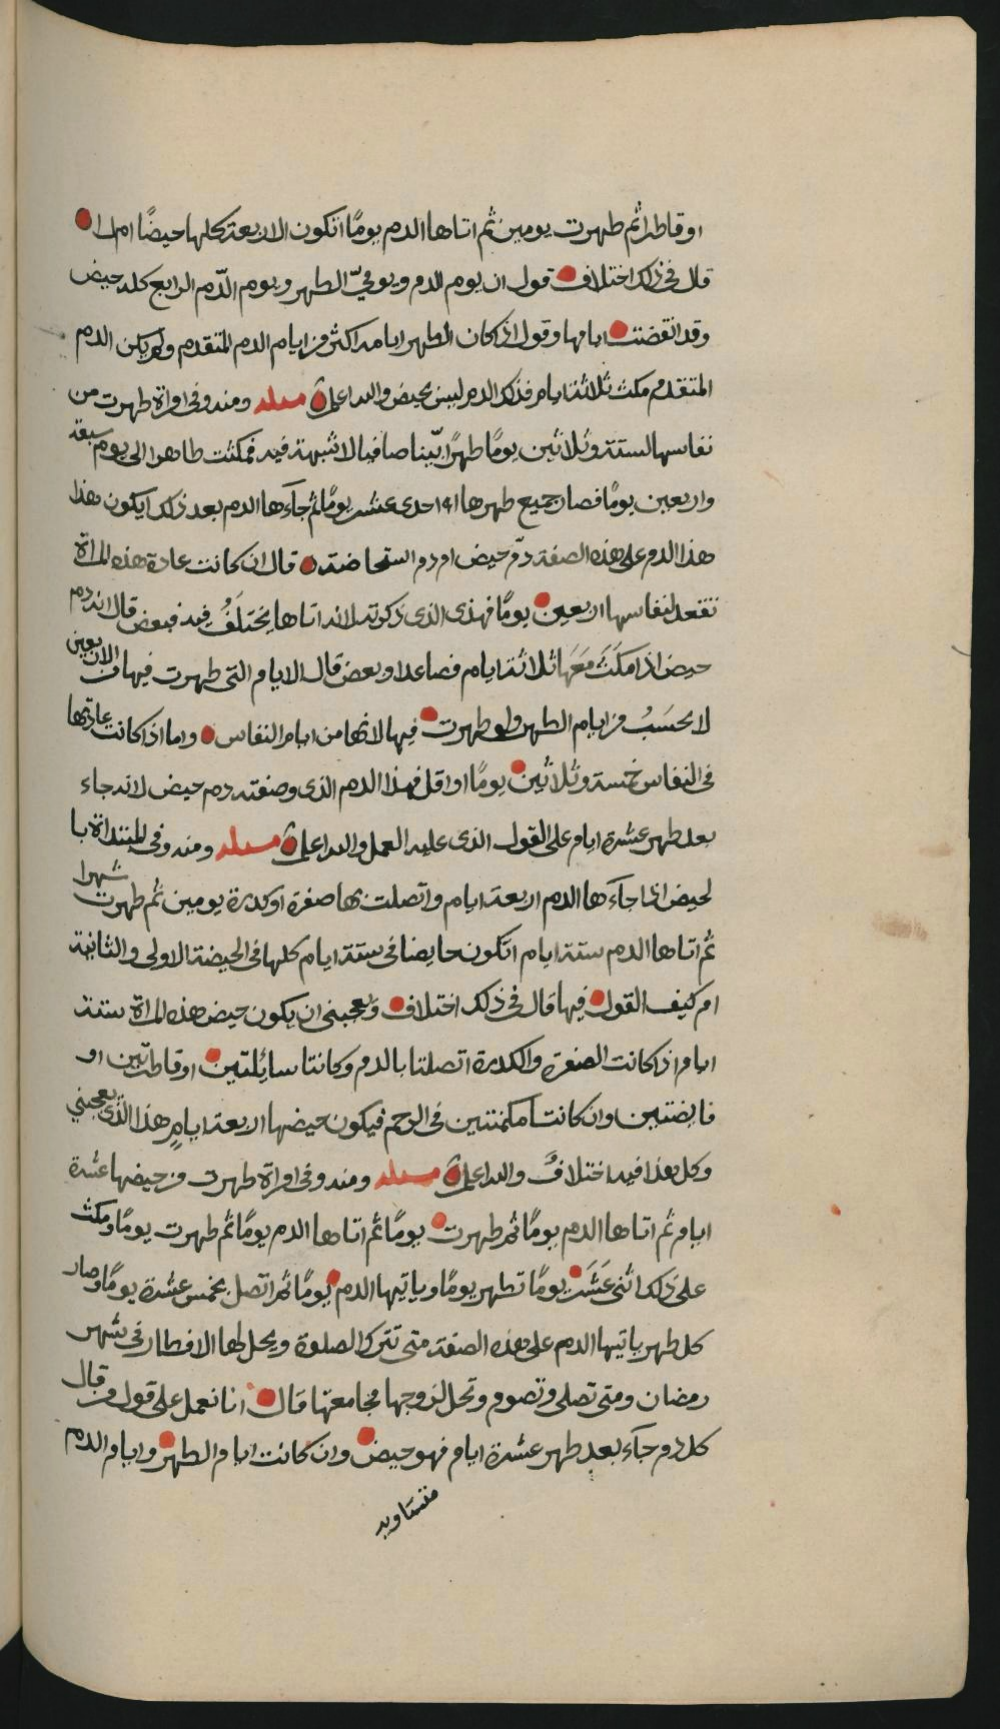 او قاطرا ثم طهرت يومين ثم اتاها الدم يومًا اتكون الاربعة كلها حيضًا ام لا
قال في ذلك اختلاف قول ان يوم الدم ويومي الطهر ويوم الدّم الرابع كله حيض
وقد انقضت ايامها وقول اذا كان الطهر ايامه اكثر من ايام الدم المتقدم ولم يكن الدم
المتقدم مكث ثلاثة ايام فذلك الدم ليس بحيض والله اعلم مسئلة ومنه وفي امراة طهرت من
نفاسها لستة وثلاثين يومًا طهرًا بيّنا صافيا لا شبهة فيه فمكثت طاهرا الى يوم سبعة
واربعين يومًا فصار جميع طهرها احدى عشر يومًا ثم جآءها الدم بعد ذلك ايكون هذا
هذا الدم على هذه الصفة دم حيض او دم استحاضة قال ان كانت عادة هذه المراة
تقعد لنفاسها اربعين يومًا فهذى الذى ذكرته لانه اتاها يختلف فيه فبعض قال انه دم
حيض اذا مكث معها ثلاثة ايام فصاعدا وبعض قال الايام التى طهرت فيها من الاربعين
لا يحسب من ايام الطهر ولو طهرت فيها لانها من ايام النفاس واما اذا كانت عادتها
فى النفاس خمسة وثلاثين يومًا او اقل فهذا الدم الذى وصفته دم حيض لانه جاء
بعد طهر عشرة ايام على القول الذى عليه العمل والله اعلم مسئلة ومنه وفى المبتداة با
لحيض اذا جآءها الدم اربعة ايام واتصلت بها صفرة او كدرة يومين ثم طهرت شهرا
ثم اتاها الدم ستة ايام اتكون حايضا فى ستة ايام كلها فى الحيضة الاولى والثانية
ام كيف القول فيها قال فى ذلك اختلاف ويعجبنى ان يكون حيض هذه المراة ستة
ايام اذا كانت الصفرة والكدرة اتصلتا بالدم وكانتا سائلتين او قاطرتين او
فايضتين وان كانتا مكمنتين فى الرحم فيكون حيضها اربعة ايام هذا الذى يعجبني
وكل هذا فيه اختلاف والله اعلم مسئلة ومنه وفى امراة طهرت من حيضها عشرة
ايام ثم اتاها الدم يومًا ثم طهرت يومًا ثم اتاها الدم يومًا ثم طهرت يومًا ومكث
على ذلك اثنى عشر يومًا تطهر يومًا وياتيها الدم يومًا ثم اتصل بخمس عشرة يومًا وصار
كل طهر ياتيها الدم على هذه الصفة متى تترك الصلوة ويحل لها الافطار فى شهر
رمضان ومتى تصلى وتصوم وتحل لزوجها مجامعتها قال انا نعمل على قول من قال
كل دم جآء بعد طهر عشرة ايام فهو حيض وان كانت ايام الطهر وايام الدم
متساويه